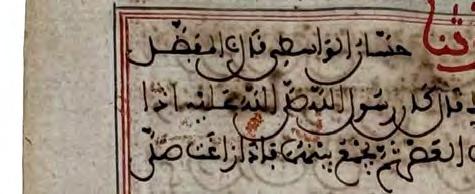 ثنا حسان الواسطي قال المفضل
قال كان رسول الله صلى الله عليه اذا
العصر ثم يجمع بينهما فاذا زاغت صلى